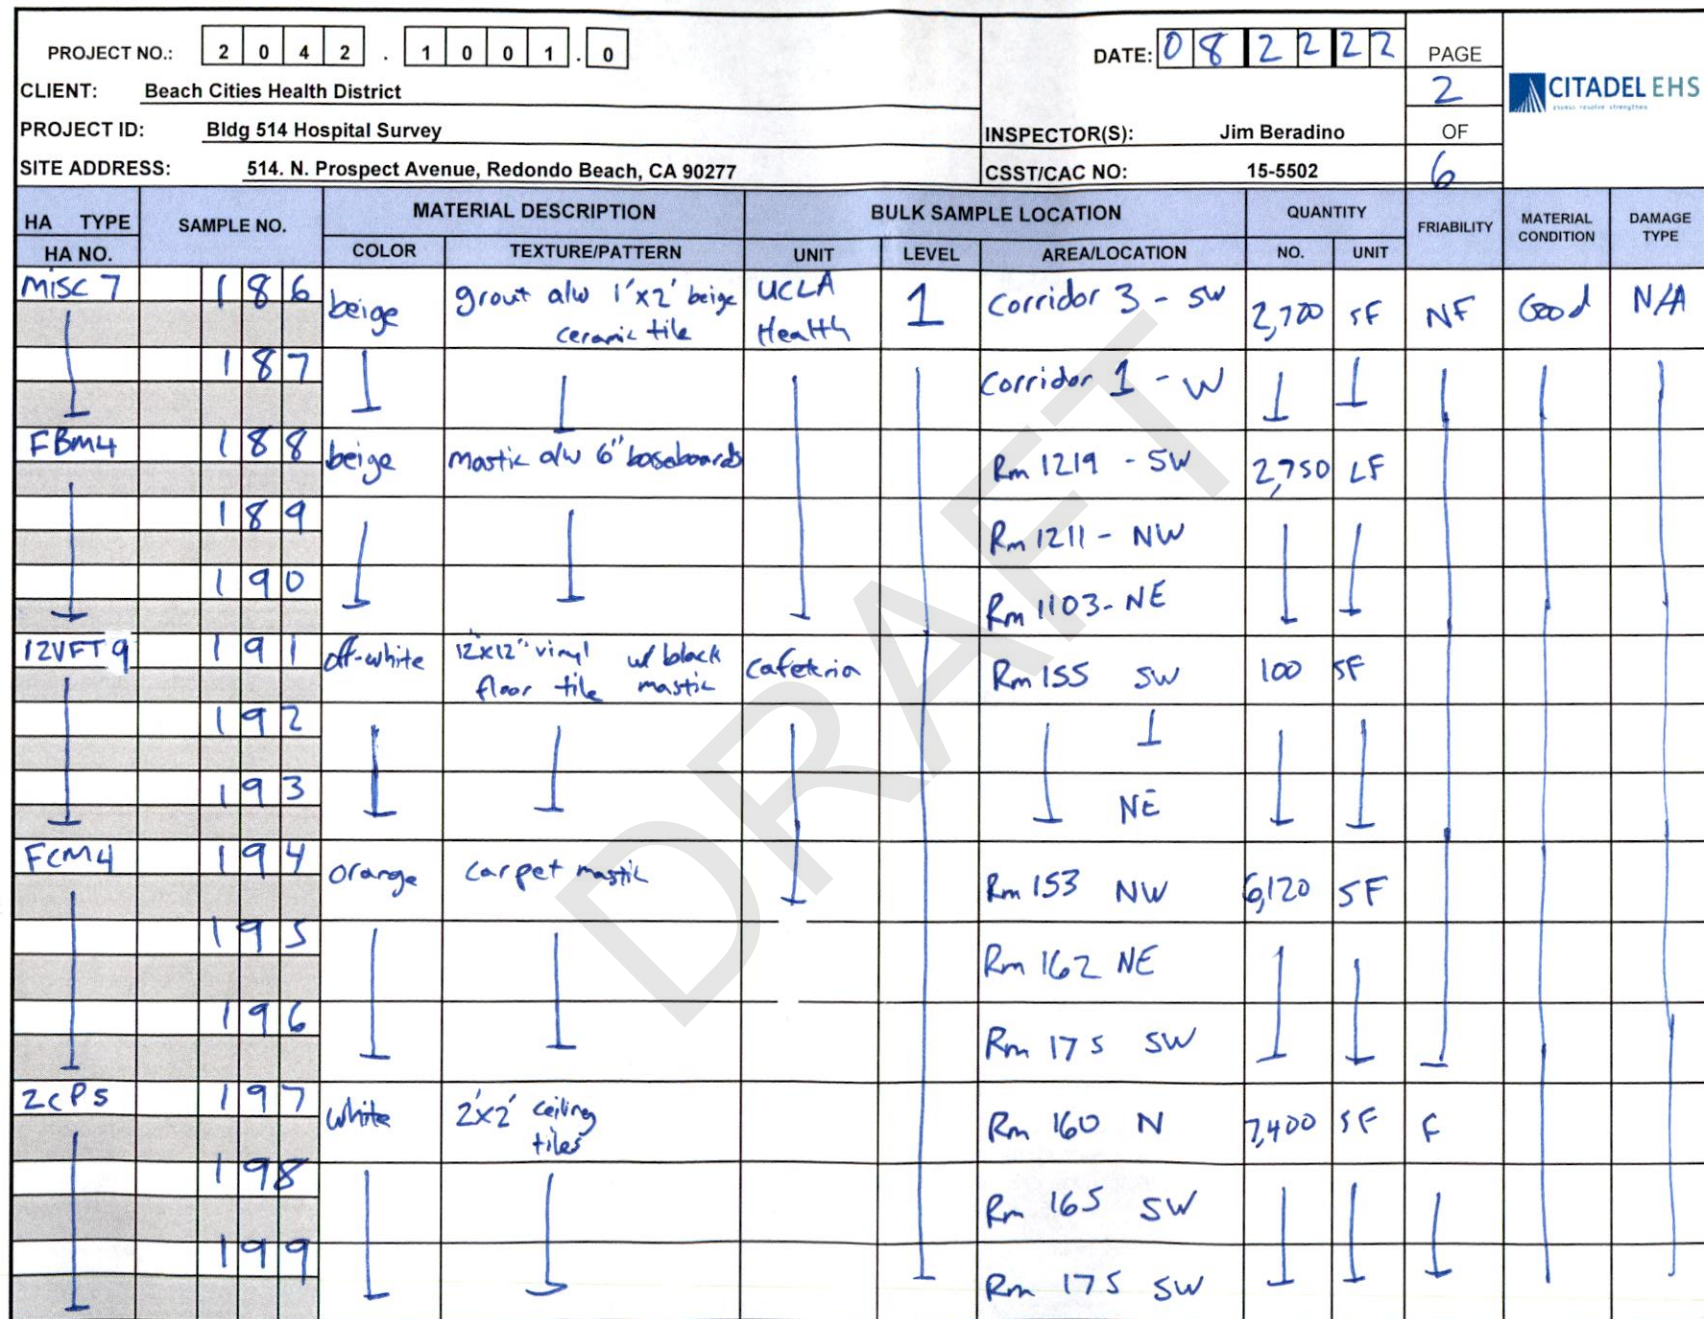 PROJECT NO.: 2 0 4 2 . 1 0 0 1 . 0 DATE: 0 8 2 2 2 2 PAGE
CLIENT: Beach Cities Health District 2 CITADEL EHS
PROJECT ID: Bldg 514 Hospital Survey INSPECTOR(S): Jim Beradino OF
SITE ADDRESS: 514. N. Prospect Avenue, Redondo Beach, CA 90277 CSST/CAC NO: 15-5502 6
HA TYPE SAMPLE NO. MATERIAL DESCRIPTION BULK SAMPLE LOCATION QUANTITY FRIABILITY MATERIAL CONDITION DAMAGE TYPE
HA NO. COLOR TEXTURE/PATTERN UNIT LEVEL AREA/LOCATION NO. UNIT
Misc 7 186 beige grout a/w 1'x2' beige ceramic tile UCLA Health 1 Corridor 3 - SW 2,700 SF NF Good N/A
187 Corridor 1 - W
FBM4 188 beige mastic a/w 6" baseboards Rm 1219 - SW 2,750 LF
189 Rm 1211 - NW
190 Rm 1103 - NE
12VFT9 191 off-white 12"x12" vinyl floor tile w/ black mastic Cafeteria Rm 155 SW 100 SF
192
193 NE
FCM4 194 orange carpet mastic Rm 153 NW 6,120 SF
195 Rm 162 NE
196 Rm 175 SW
2CP5 197 white 2'x2' ceiling tiles Rm 160 N 7,400 SF F
198 Rm 165 SW
199 Rm 175 SW
DRAFT